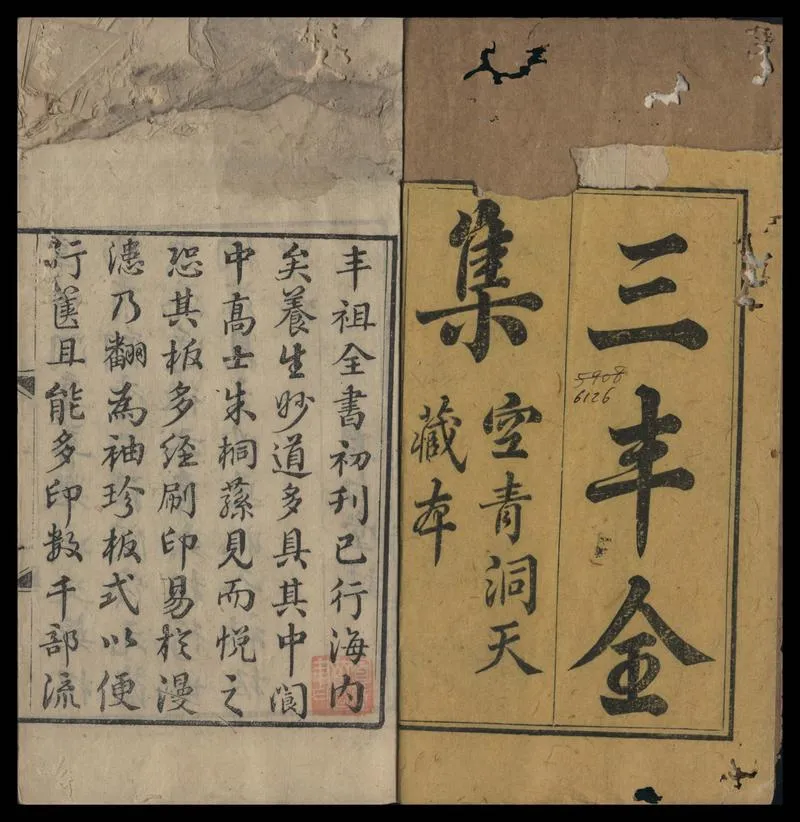 三丰全
集
空青洞天
藏本
5908
6126
丰祖全書初刊已行海内
矣養生妙道多具其中閬
中高士朱桐蓀見而悦之
恐其板多經刷印易於漫
漶乃翻為袖珍板式以便
行篋且能多印数千部流